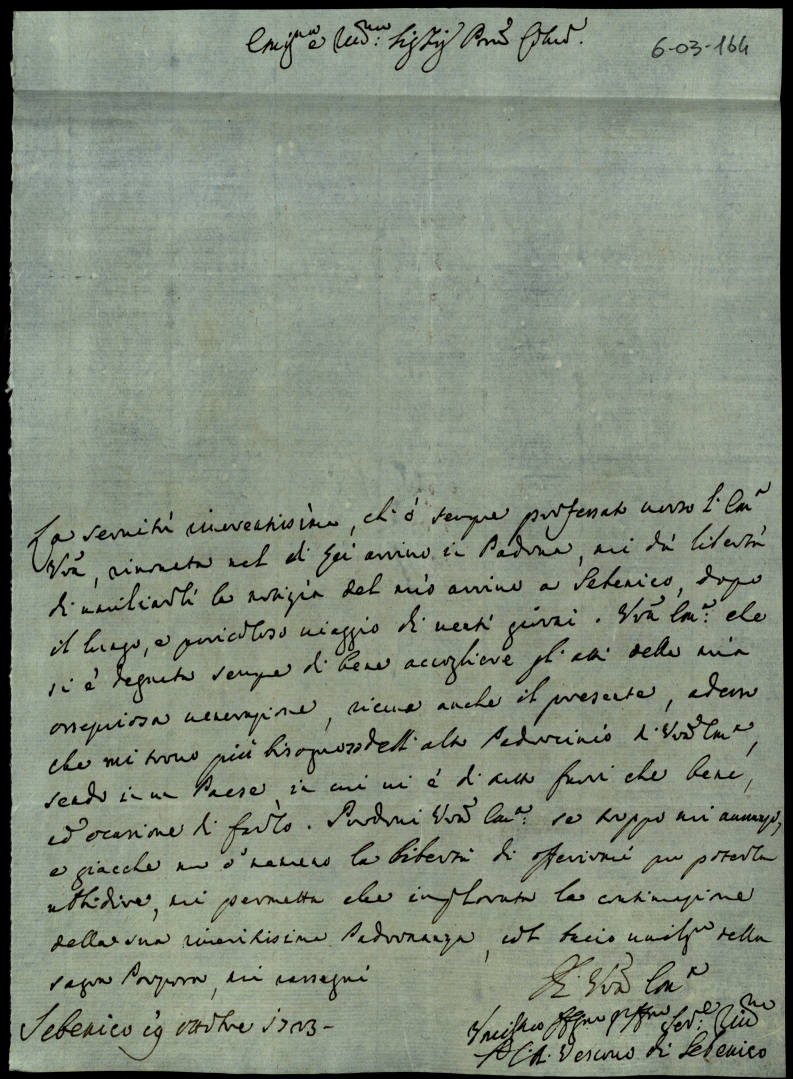 6-03-164
Em.ᵐᵒ e Rev.ᵐᵒ Sig Sig Pron Colmo.
La servitù riverentissima, ch' ò sempre professato verso l' Em.ᵃ
Vrã, rinovata nel di Lei arrivo in Padova, mi dà libertà
di umiliarli la notizia del mio arrivo a Sebenico, dopo
il lungo, e pericoloso viaggio di venti giorni. Vrã Em.ᵃ che
si è degnata sempre di bene accogliere gli atti della mia
ossequiosa venerazione, riceva anche il presente, adesso
che mi trovo più bisognoso dell' alto Padrocinio di Vrã Em.ᵃ,
sendo in un Paese in cui vi è di tutto fuori che bene,
ed occasione di farlo. Perdoni Vrã Em.ᵃ se troppo mi avanzo,
e giacche non ò nemeno la libertà di offerirmi per poterla
ubbidire, mi permetta che implorata la continuazione
della sua riveritissima Padronanza, col bacio umilᵐᵒ della
sagra Porpora, mi rassegni
Di Vrã Em.ᵃ
Sebenico 19 ottobre 1723-
Servᵉ
Vescovo di Sebenico